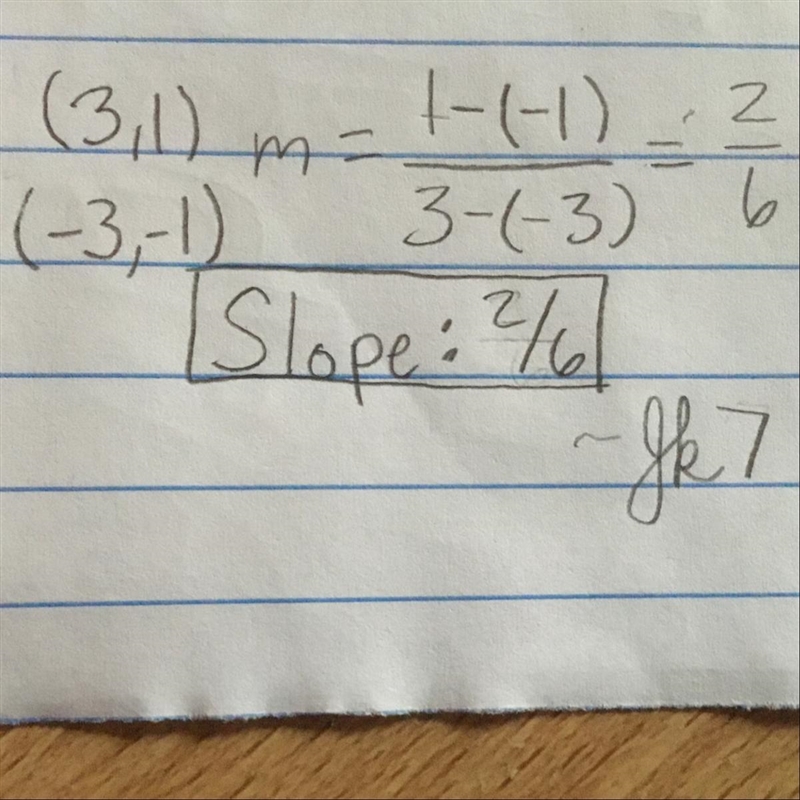 (3,1) m = 1-(-1) / 3-(-3) = 2/6
(-3,-1)
Slope: 2/6
~ jk7